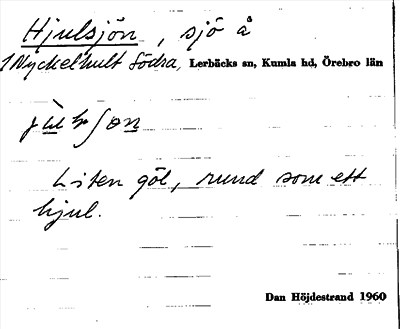 Hjulsjön, sjö å
1 Nyckelhult Södra, Lerbäcks sn, Kumla hd, Örebro län
Liten göl, rund som ett
hjul.
Dan Höjdestrand 1960